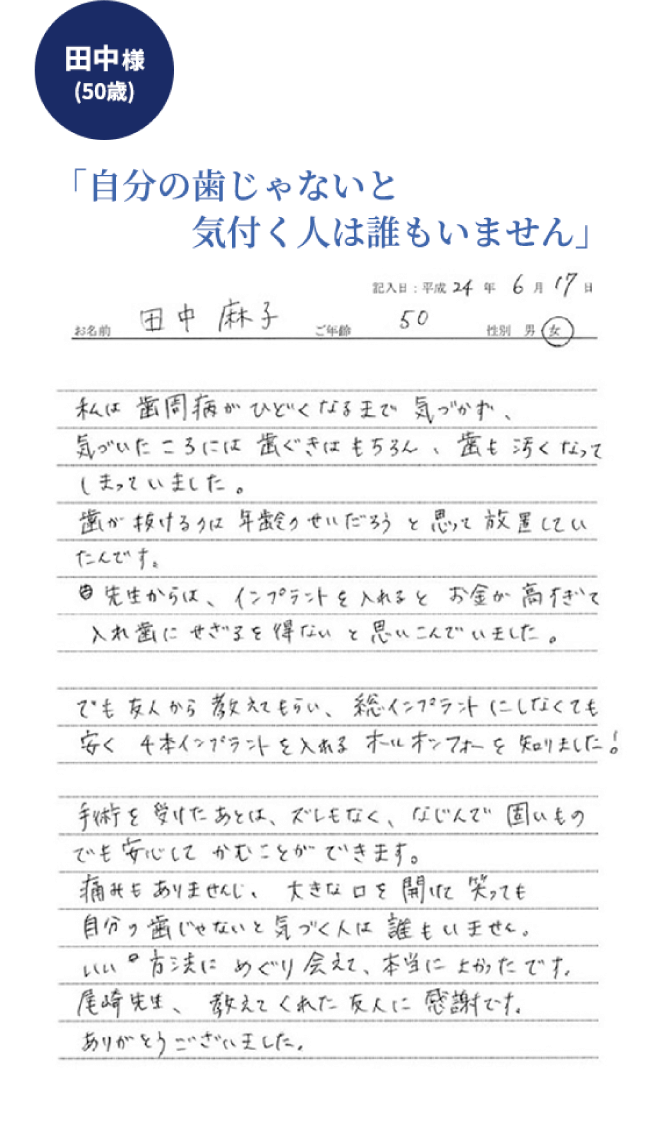 田中様
(50歳)
「自分の歯じゃないと
気付く人は誰もいません」
記入日:平成 24 年 6 月 17 日
お名前 田中 麻子 ご年齢 50 性別 男 女
私は 歯周病が ひどくなるまで 気づかず、
気づいたころには 歯ぐきはもちろん、歯も 汚くなって
しまっていました。
歯が抜けるのは 年齢のせいだろうと思って放置してい
たんです。
先生からは、インプラントを入れると お金が高すぎて
入れ歯にせざるを得ないと思いこんでいました。
でも友人から教えてもらい、総インプラントにしなくても
安く 4本インプラントを入れる オールオンフォーを知りました!
手術を受けたあとは、ズレもなく、なじんで 固いもの
でも安心して かむことができます。
痛みもありませんし、大きな口を開けて笑っても
自分の歯じゃないと気づく人は 誰もいません。
いい 方法に めぐり会えて、本当に よかったです。
尾崎先生、教えてくれた友人に 感謝です。
ありがとうございました。